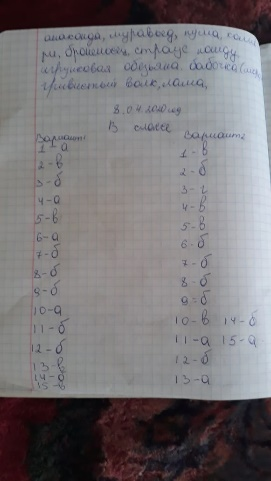 анаконда, муравоед, пума, коли
ри, броненосец, страус нанду
игрунковая обезьяна бабочка
гривистый волк, лама,
8.04.2020 год
В классе
Вариант 1
1-а
2-в
3-б
4-а
5-в
6-а
7-б
8-б
9-б
10-а
11-б
12-б
13-в
14-а
15-в
Вариант 2
1-в
2-б
3-г
4-в
5-в
6-б
7-б
8-б
9-б
10-в 14-б
11-а 15-а
12-б
13-а